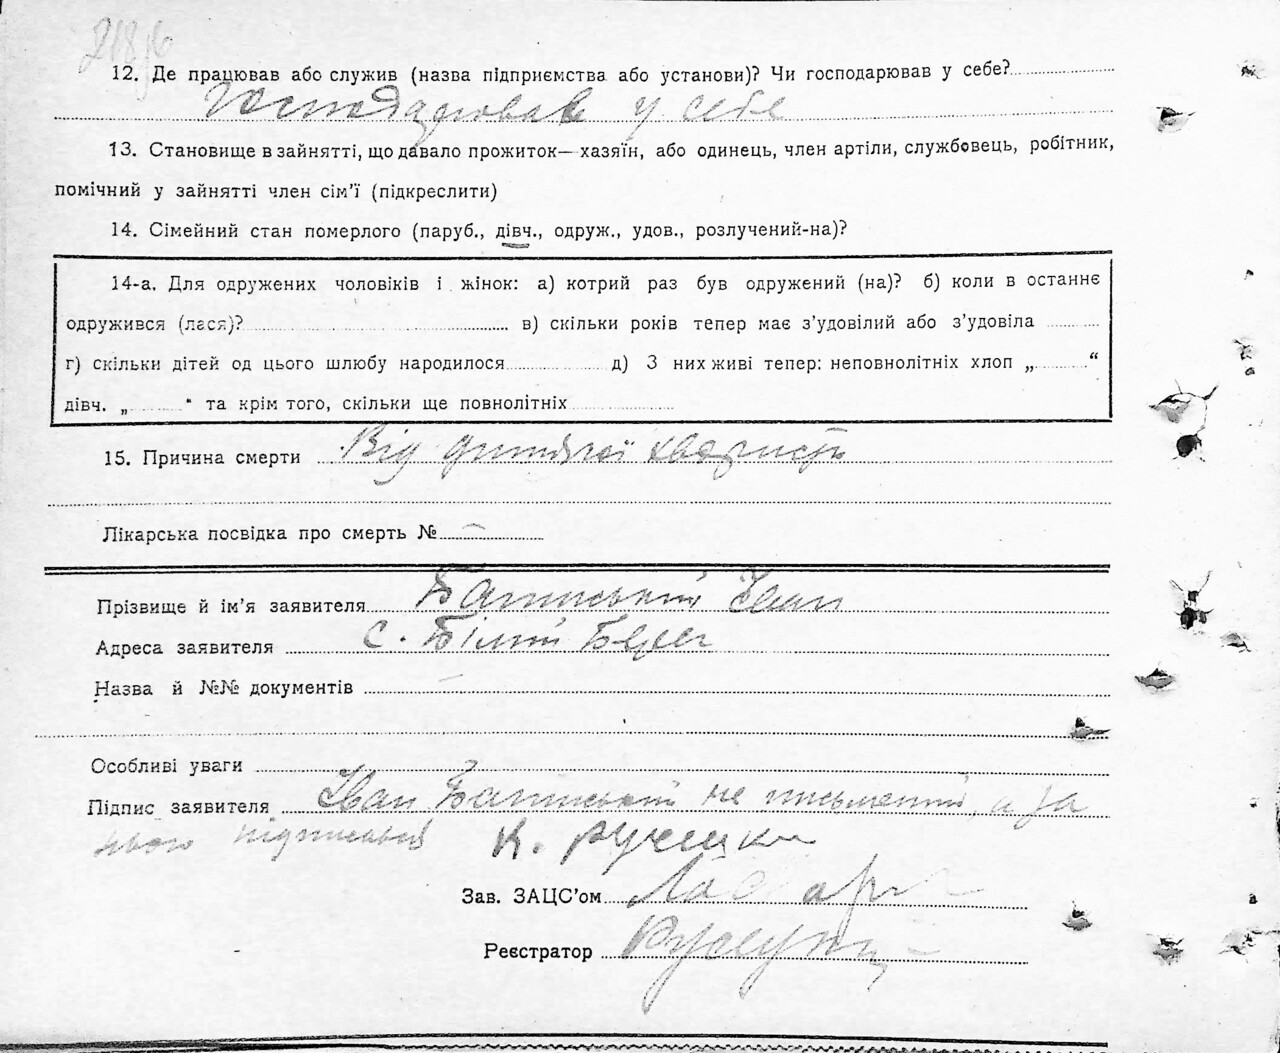 12. Де працював або служив (назва підприємства або установи)? Чи господарював у себе?
Господарював у себе
13. Становище в зайнятті, що давало прожиток—хазяїн, або одинець, член артіли, службовець, робітник,
помічний у зайнятті член сім'ї (підкреслити)
14. Сімейний стан померлого (паруб., дівч., одруж., удов., розлучений-на)?
14-а. Для одружених чоловіків і жінок: а) котрий раз був одружений (на)? б) коли в останнє
одружився (лася)? в) скільки років тепер має з'удовілий або з'удовіла
г) скільки дітей од цього шлюбу народилося д) З них живі тепер: неповнолітніх хлоп „ “
дівч. „ “ та крім того, скільки ще повнолітніх
15. Причина смерти Від дитячої
Лікарська посвідка про смерть № —
Прізвище й ім'я заявителя Іван
Адреса заявителя с. Білий Берег
Назва й №№ документів —
Особливі уваги
Підпис заявителя Іван не письменний, а за
нього підписався К.
Зав. ЗАЦС'ом
Реєстратор